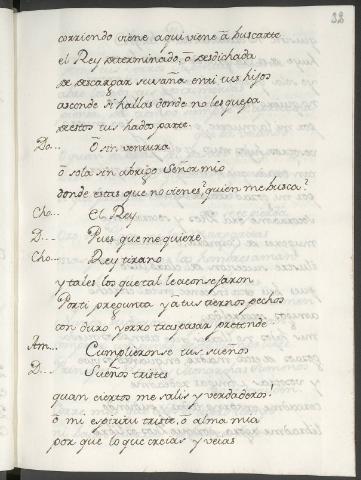 32
corriendo viene aqui viene à buscarte
el Rey determinado, ò desdichada
de descargar su saña en ti tus hijos
asconde si hallas donde no les quepa
destos tus hados parte.
Do... O sin ventura
ò sola sin abrigo Señor mio
donde estas que no vienes? quien me busca?
Cho... El Rey
D... Pues que me quiere
Cho... Rey tirano
y tales los que tal le aconsejaron
Por ti pregunta y à tus tiernos pechos
con duro yerro traspasar pretende.
Am... Cumplieronse tus sueños
D... Sueños tristes
quan ciertos me salis y verdaderos!
ò mi espiritu triste, ò alma mia
por que lo que creias y veias